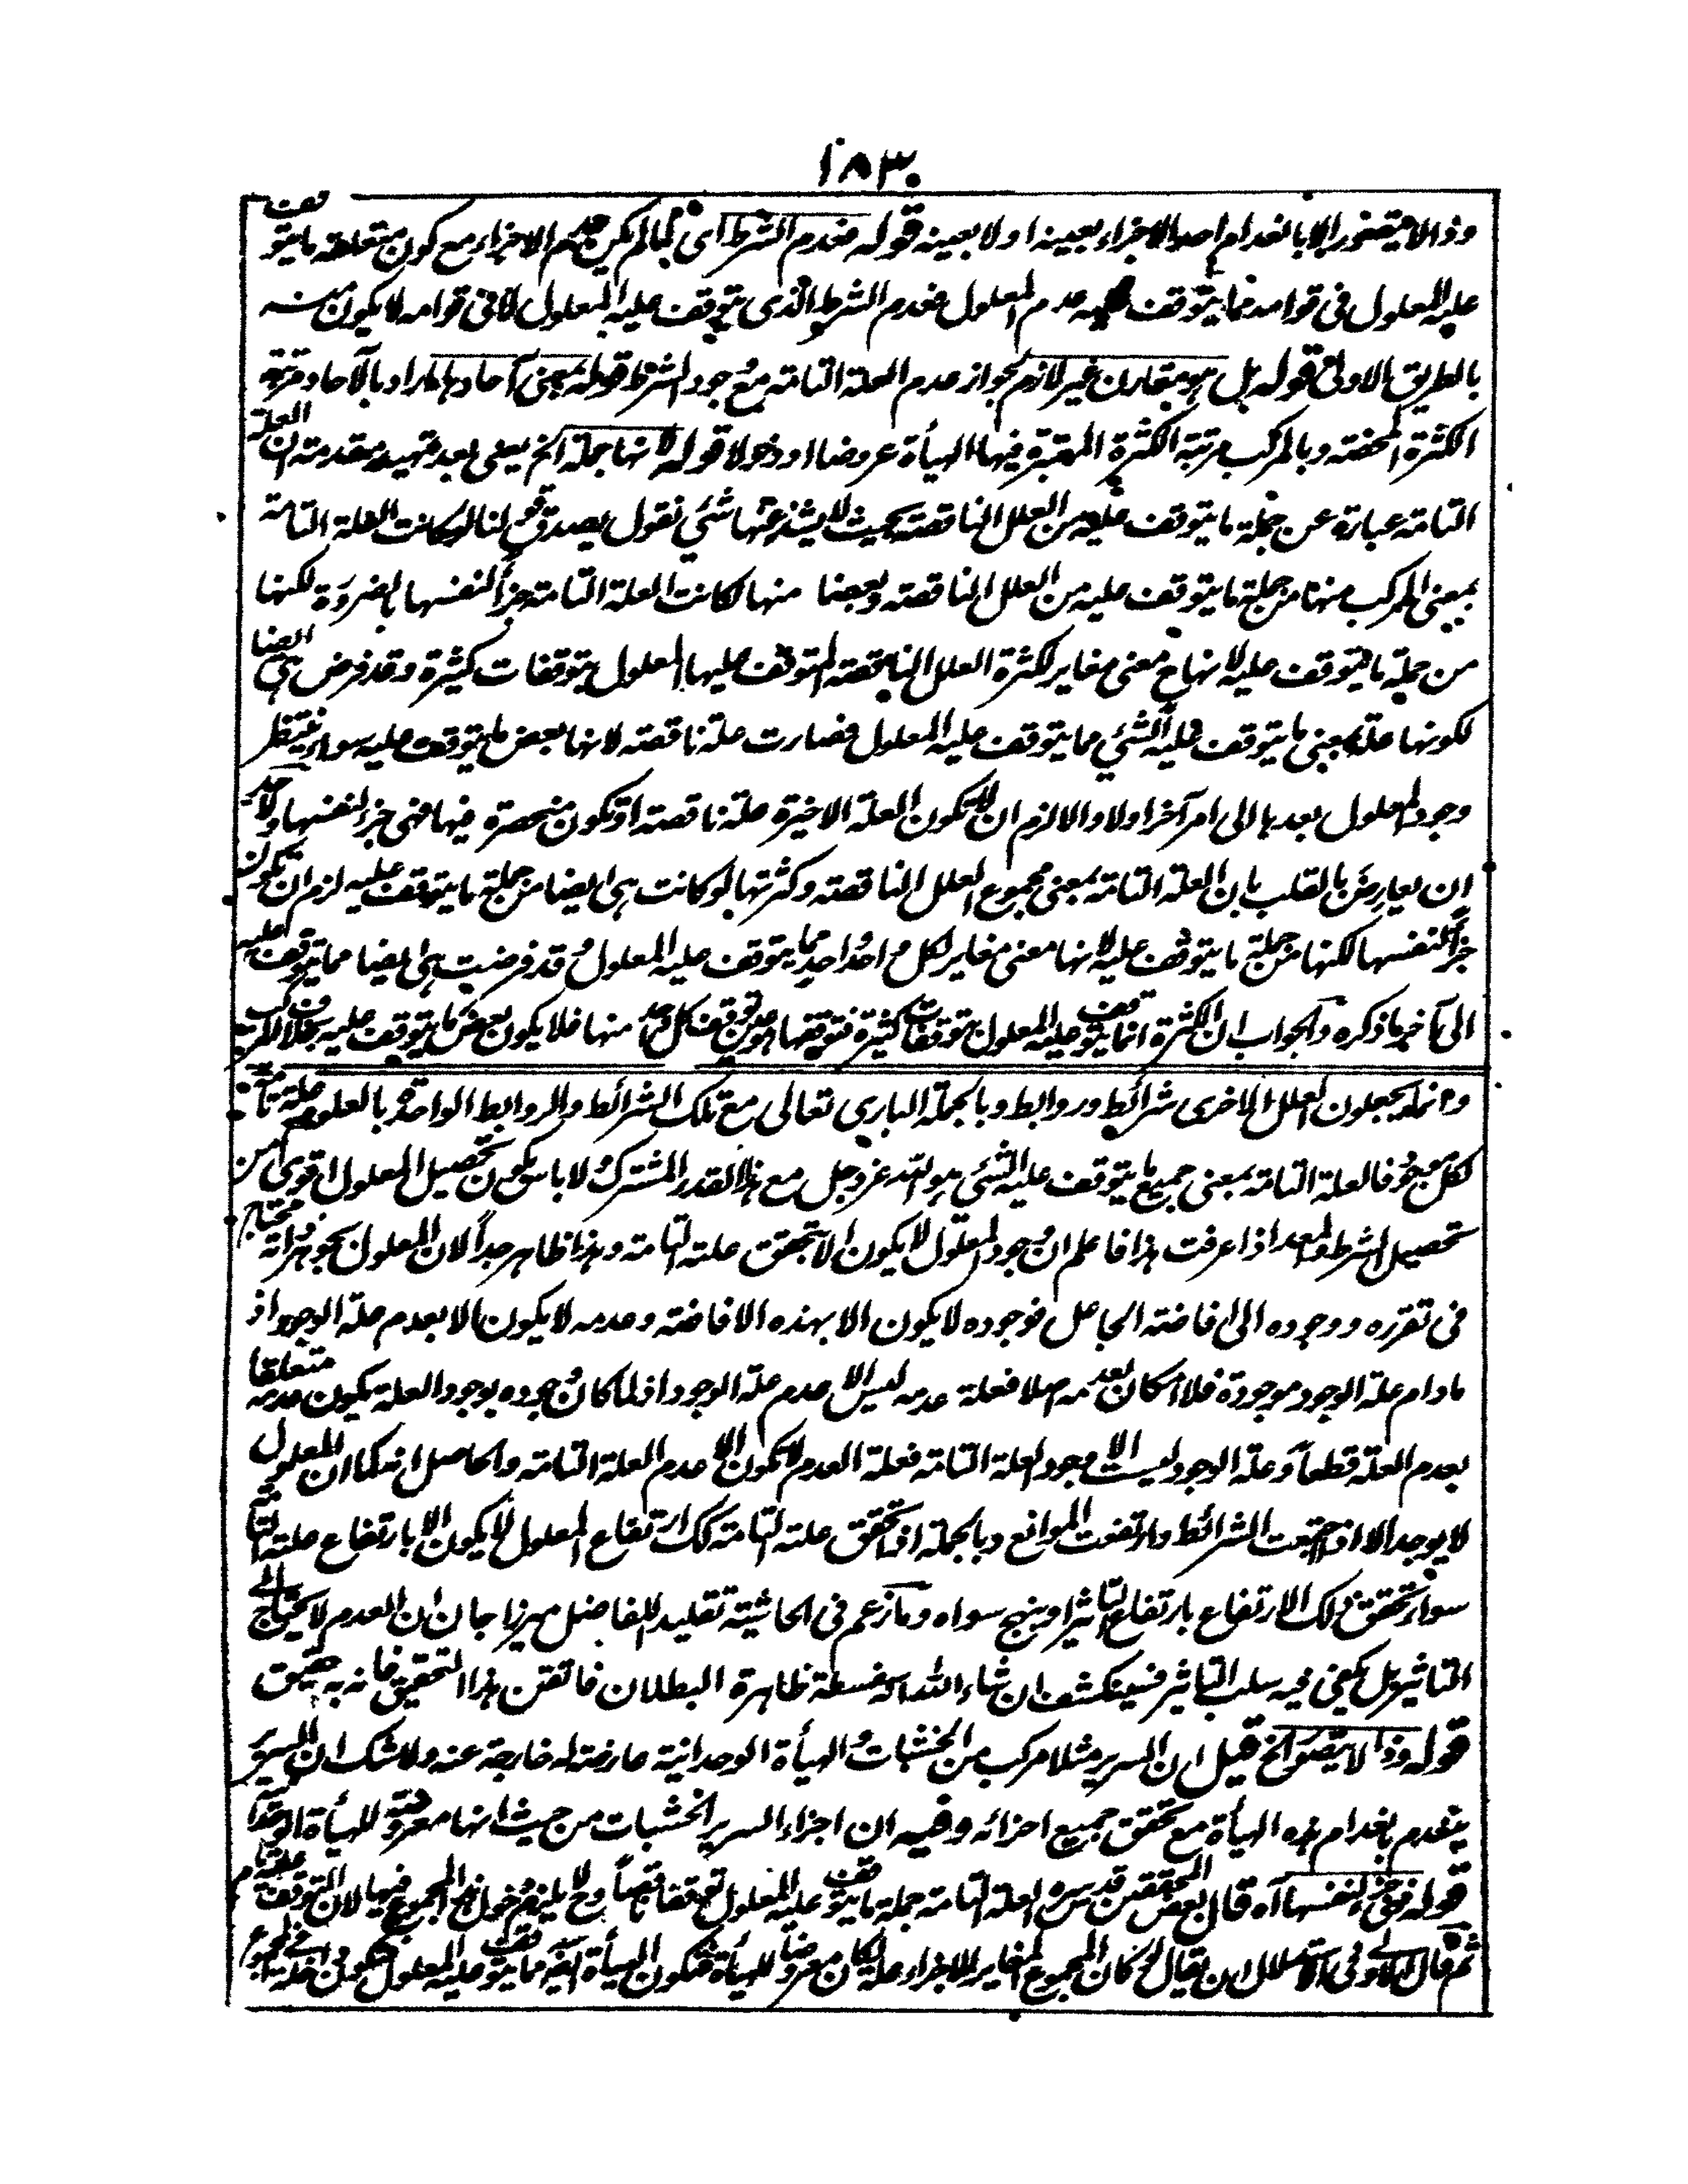 ١٨٣
وذا لا يتصور الا بانعدام احد الاجزاء بعينه او لا بعينه قوله فعدم الشرط اى لما لم يكن عدم الاجزاء مع كون متعلقه ما يتوقف
عليه المعلول فى قوامه مما يتوقف عليه عدم المعلول فعدم الشرط الذى يتوقف عليه المعلول لا فى قوامه لا يكون منه
بالطريق الاولى قوله بل هو مقارن غير لازم لجواز عدم العلة التامة مع وجود الشرط قوله بمعنى آحادها المراد بالآحاد مرتبة
الكثرة المحضة وبالمركب مرتبة الكثرة المعتبرة فيها الهيأة عروضا او دخولا قوله لانها جملة الخ يعنى بعد تمهيد مقدمة ان العلة
التامة عبارة عن جملة ما يتوقف عليه من العلل الناقصة بحيث لا يشذ عنها شئ نقول يصدق قولنا لو كانت العلة التامة
بمعنى المركب منها من جملة ما يتوقف عليه من العلل الناقصة وبعضا منها لكانت العلة التامة جزأ لنفسها بالضرورة لكنها
من جملة ما يتوقف عليه لانها ح معنى مغاير لكثرة العلل الناقصة المتوقف عليها المعلول بتوقفات كثيرة وقد فرض هى ايضا
لكونها علة بمعنى ما يتوقف عليه الشئ مما يتوقف عليه المعلول فصارت علة ناقصة لانها بعض ما يتوقف عليه سواء ينتظر
وجود المعلول بعدها الى امر آخر اولا والا لزم ان لا تكون العلة الاخيرة علة ناقصة او تكون منحصرة فيها فهى جزء لنفسها ولاحد
ان يعارض بالقلب بان العلة التامة بمعنى مجموع العلل الناقصة وكثرتها لو كانت هى ايضا من جملة ما يتوقف عليه لزم ان تكون
جزأ لنفسها لكنها من جملة ما يتوقف عليه لانها معنى مغاير لكل واحد واحد مما يتوقف عليه المعلول وقد فرضت هى ايضا مما يتوقف عليه
الى آخر ما ذكره والجواب ان الكثرة انما يتوقف عليه المعلول بتوقفات كثيرة فتوقفها هو عين توقف كل واحد منها فلا يكون بعض ما يتوقف عليه بخلاف المركب
وانما يجعلون العلل الاخرى شرائط وروابط وبالجملة البارى تعالى مع تلك الشرائط والروابط الواحدة بالعلوم علة تامة
لكل موجود فالعلة التامة بمعنى جميع ما يتوقف عليه الشئ هو الله عز وجل مع هذا القدر المشترك ولا باس بكون تحصيل المعلول اقوى من
تحصيل الشرط والمعد اذا عرفت هذا فاعلم ان وجود المعلول لا يكون الا بتحقق علته التامة وهذا ظاهر جدا لان المعلول بجوهر ذاته محتاج
فى تقرره ووجوده الى افاضة الجاعل فوجوده لا يكون الا بهذه الافاضة وعدمه لا يكون الا بعدم علة الوجود اذ
ما دام علة الوجود موجودة فلا امكان لعدمه اصلا فعلة عدمه ليس الا عدم علة الوجود اذ لما كان وجوده بوجود العلة يكون عدمه متعلقا
بعدم العلة قطعا وعلة الوجود ليست الا وجود العلة التامة فعلة العدم لا تكون الا عدم العلة التامة والحاصل انه كما ان المعلول
لا يوجد الا اذا اجتمعت الشرائط وارتفعت الموانع وبالجملة اذا تحقق علته التامة كك ارتفاع المعلول لا يكون الا بارتفاع علته التامة
سواء تحقق ذلك الارتفاع بارتفاع التاثير او بنهج سواه وما زعم فى الحاشية تقليدا للفاضل ميرزا جان ان العدم لا يحتاج الى
التاثير بل يكفى فيه سلب التاثير فسينكشف ان شاء الله انه سفسطة ظاهرة البطلان فاتقن هذا التحقيق فانه به حقيق
قوله وذا لا يتصور الخ قيل ان السرير مثلا مركب من الخشبات والهيأة الوحدانية عارضة له خارجة عنه ولا شك ان السرير
ينعدم بانعدام هذه الهيأة مع تحقق جميع اجزائه وفيه ان اجزاء السرير الخشبات من حيث انها معروضة للهيأة الوحدانية
قوله فهى جزء لنفسها آه قال بعض المحققين قدس سره العلة التامة جملة ما يتوقف عليه المعلول توقفا ناقصا وح لا يلزم دخول المجموع فيها لان التوقف عليه تام
ثم قال الاولى فى الاستدلال ان يقال لو كان المجموع المغاير للاجزاء علة لكان معروضا للهيأة فتكون الهيأة ايضا مما يتوقف عليه المعلول فتكون داخلة فى المجموع